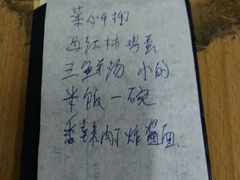 菜心牛柳
西红柿鸡蛋
三鲜汤 小的
米饭一碗
香辣肉丁炸酱面